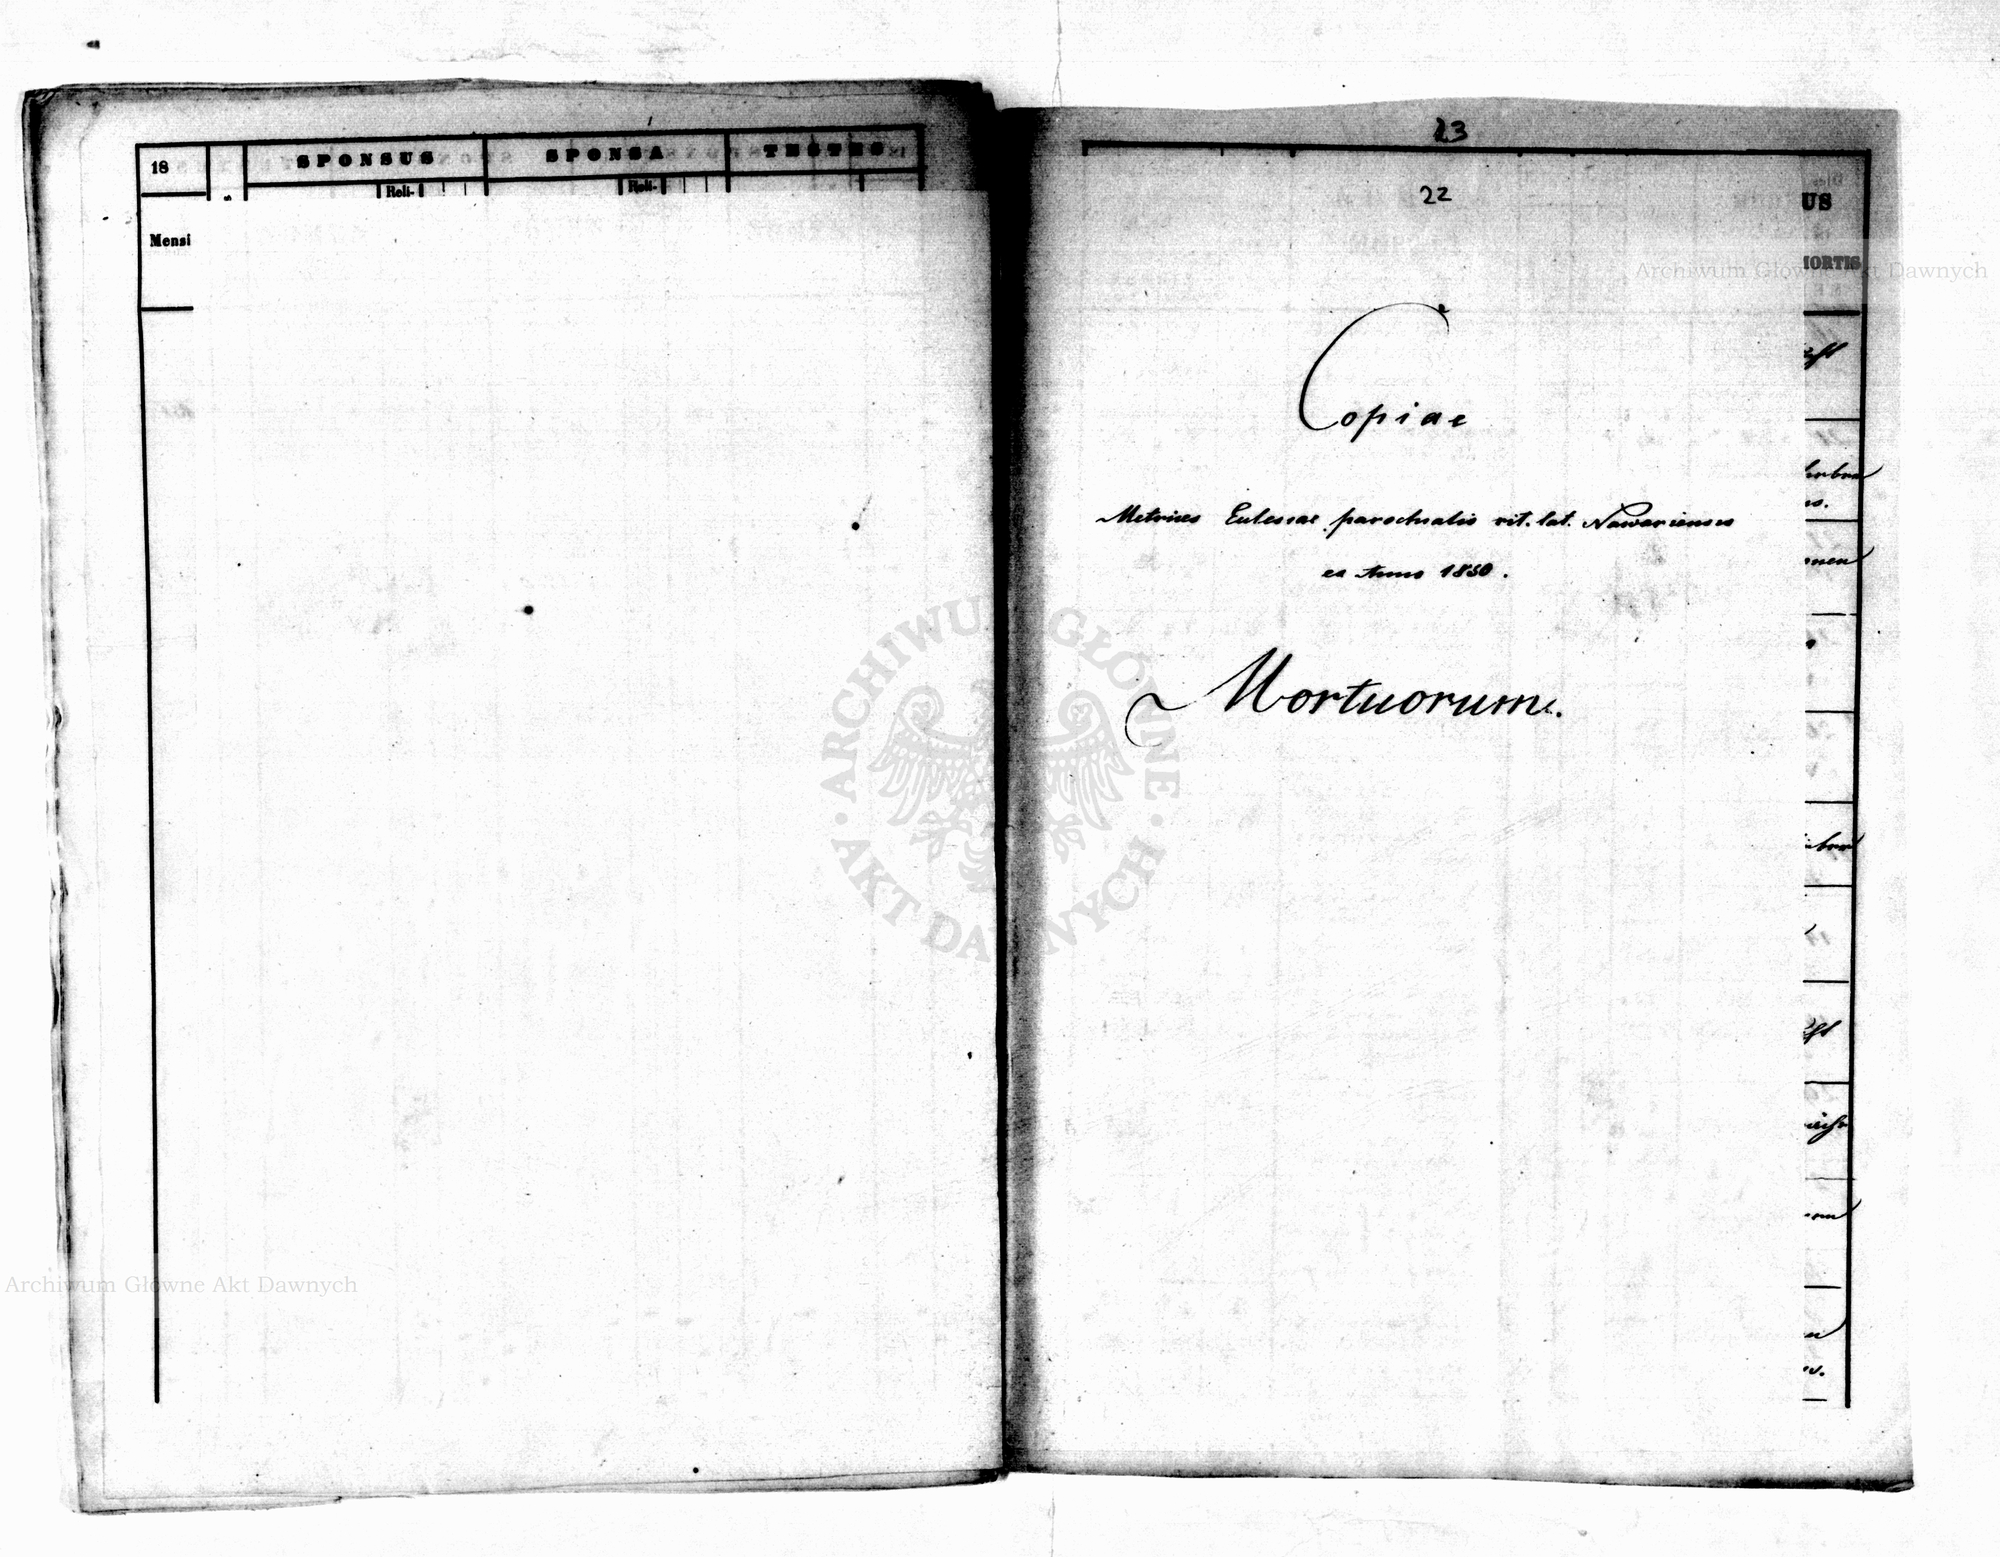 18
SPONSUS
SPONSA
TESTES
Reli-
Reli-
Mensi
23
22
US
MORTIS
Copiae
Metrices Eclesiae parochialis rit. lat. Nawariensis
ex Anno 1850.
Mortuorum.
ARCHIWUM GŁÓWNE AKT DAWNYCH
Archiwum Główne Akt Dawnych
Archiwum Główne Akt Dawnych